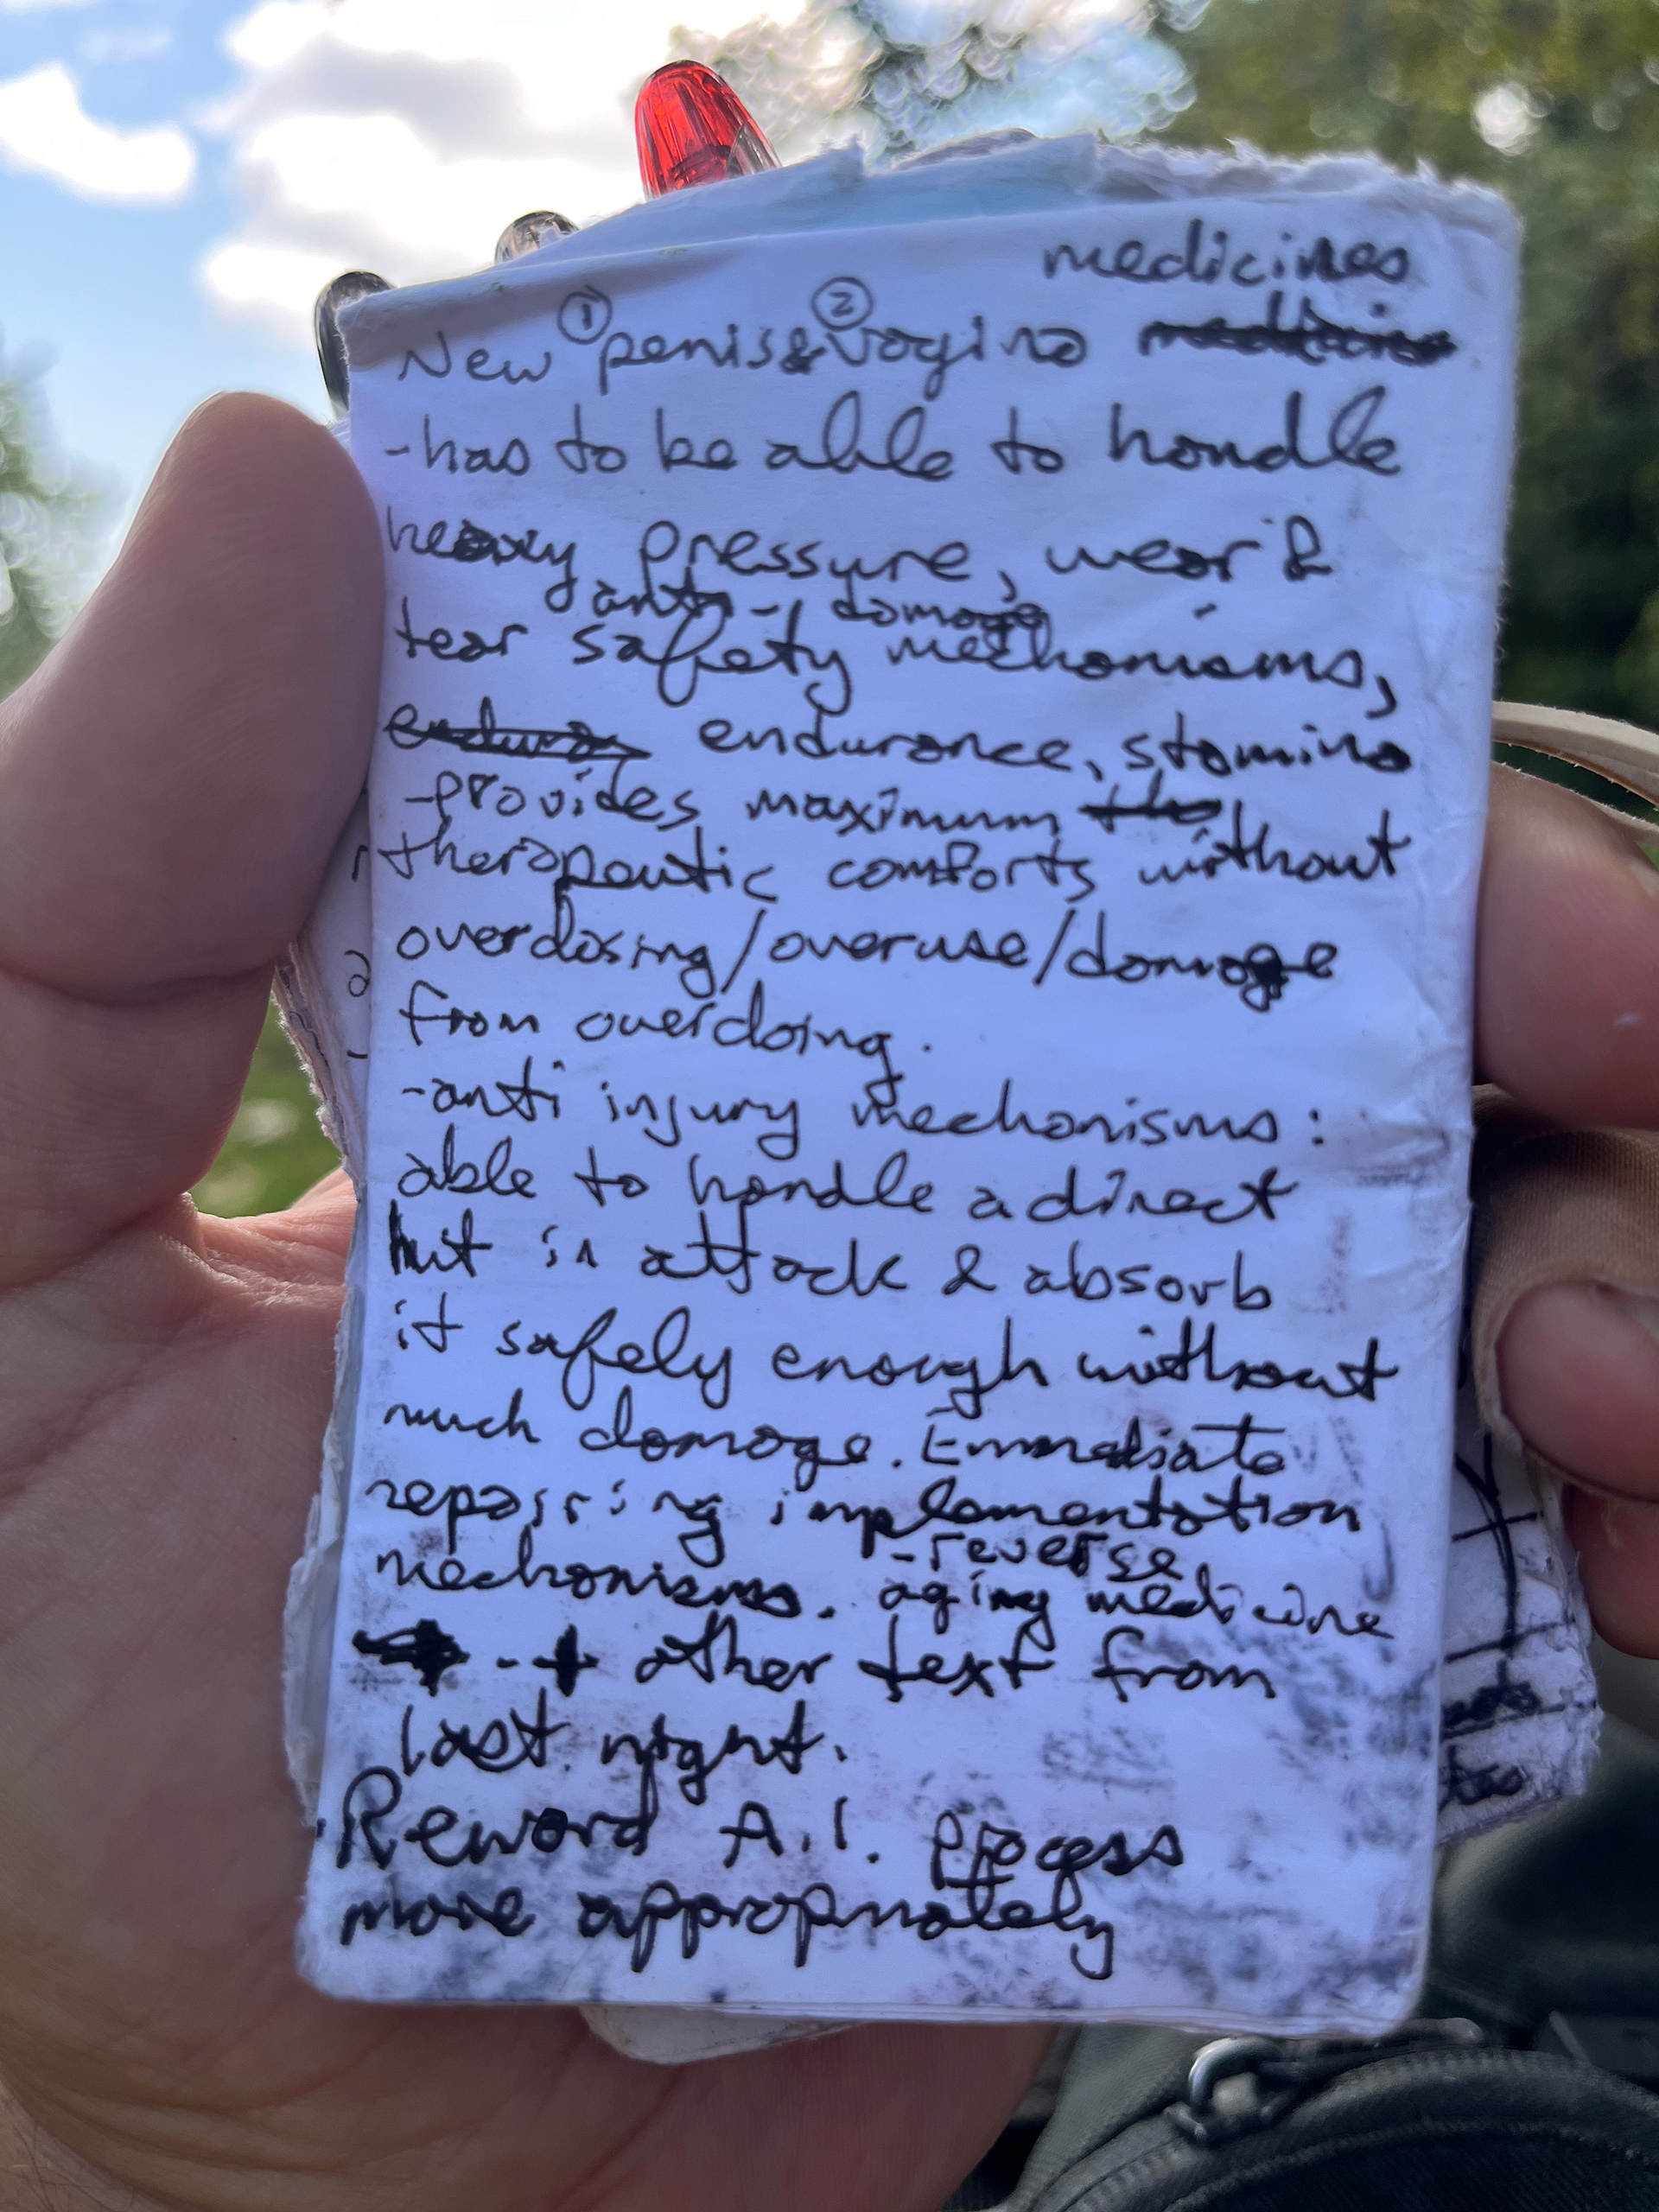 medicines
New ① penis & ② vagina
-has to be able to handle
heavy pressure, wear &
anti-damage
tear safety mechanisms,
endurance, stamina
-provides maximum
therapeutic comforts without
overdosing/overuse/damage
from overdoing.
-anti injury mechanisms:
able to handle a direct
hit in attack & absorb
it safely enough without
much damage. Immediate
repairing implementation
mechanisms. -reverse
aging medicine
-+ other text from
last night.
Reword A.I. process
more appropriately